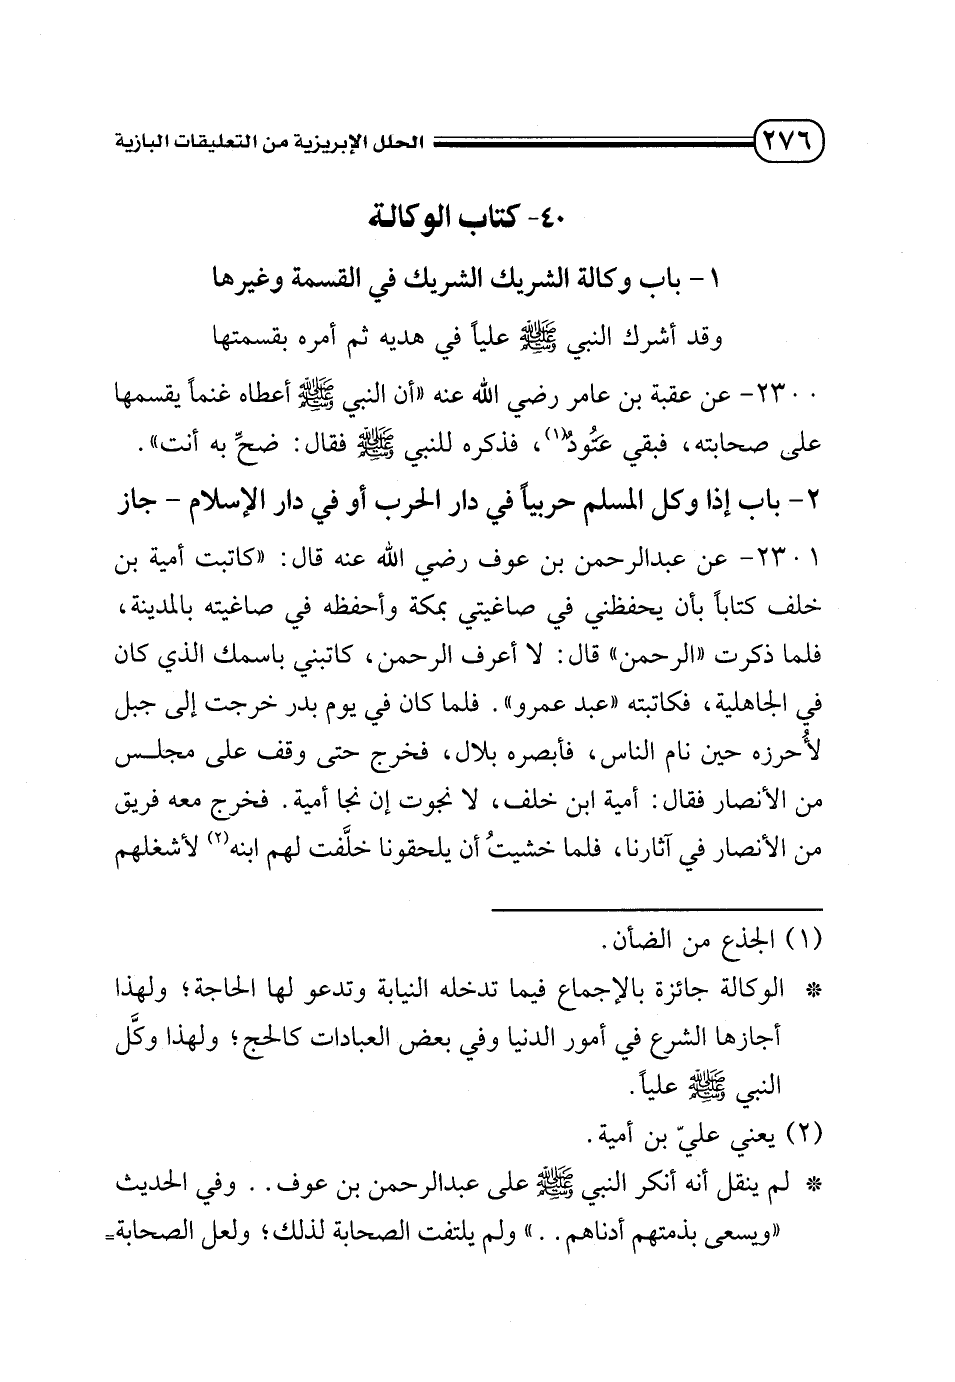 ٢٧٦ الحلل الإبريزية من التعليقات البازية
٤٠- كتاب الوكالة
١- باب وكالة الشريك الشريك في القسمة وغيرها
وقد أشرك النبي ﷺ علياً في هديه ثم أمره بقسمتها
٢٣٠٠- عن عقبة بن عامر رضي الله عنه «أن النبي ﷺ أعطاه غنماً يقسمها
على صحابته، فبقي عَتُودٌ(١)، فذكره للنبي ﷺ فقال: ضحِّ به أنت».
٢- باب إذا وكل المسلم حربياً في دار الحرب أو في دار الإسلام - جاز
٢٣٠١- عن عبدالرحمن بن عوف رضي الله عنه قال: «كاتبت أمية بن
خلف كتاباً بأن يحفظني في صاغيتي بمكة وأحفظه في صاغيته بالمدينة،
فلما ذكرت «الرحمن» قال: لا أعرف الرحمن، كاتبني باسمك الذي كان
في الجاهلية، فكاتبته «عبد عمرو». فلما كان في يوم بدر خرجت إلى جبل
لأُحرزه حين نام الناس، فأبصره بلال، فخرج حتى وقف على مجلس
من الأنصار فقال: أمية ابن خلف، لا نجوت إن نجا أمية. فخرج معه فريق
من الأنصار في آثارنا، فلما خشيتُ أن يلحقونا خلَّفت لهم ابنه(٢) لأشغلهم
(١) الجذع من الضأن.
* الوكالة جائزة بالإجماع فيما تدخله النيابة وتدعو لها الحاجة؛ ولهذا
أجازها الشرع في أمور الدنيا وفي بعض العبادات كالحج؛ ولهذا وكَّل
النبي ﷺ علياً.
(٢) يعني عليّ بن أمية.
* لم ينقل أنه أنكر النبي ﷺ على عبدالرحمن بن عوف.. وفي الحديث
«ويسعى بذمتهم أدناهم..» ولم يلتفت الصحابة لذلك؛ ولعل الصحابة=